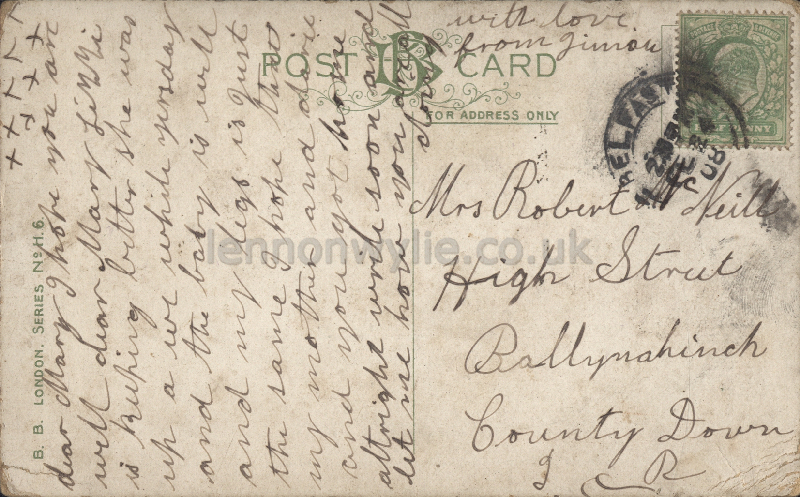 dear Mary I hope you are
well dear Mary Lizzie
is keeping better she was
up a we while yesday
and the baby is well
and my legs is just
the same I hope that
my mother and davie
and you got home
allright write soon and
let me how you are all
doing
with love
from
x x x x x
x x x
POST CARD
FOR ADDRESS ONLY
BELFAST
08
Mrs Robert McNeill
High Street
Ballynahinch
County Down
B. B. LONDON. SERIES No H.6.
lennonwylie.co.uk